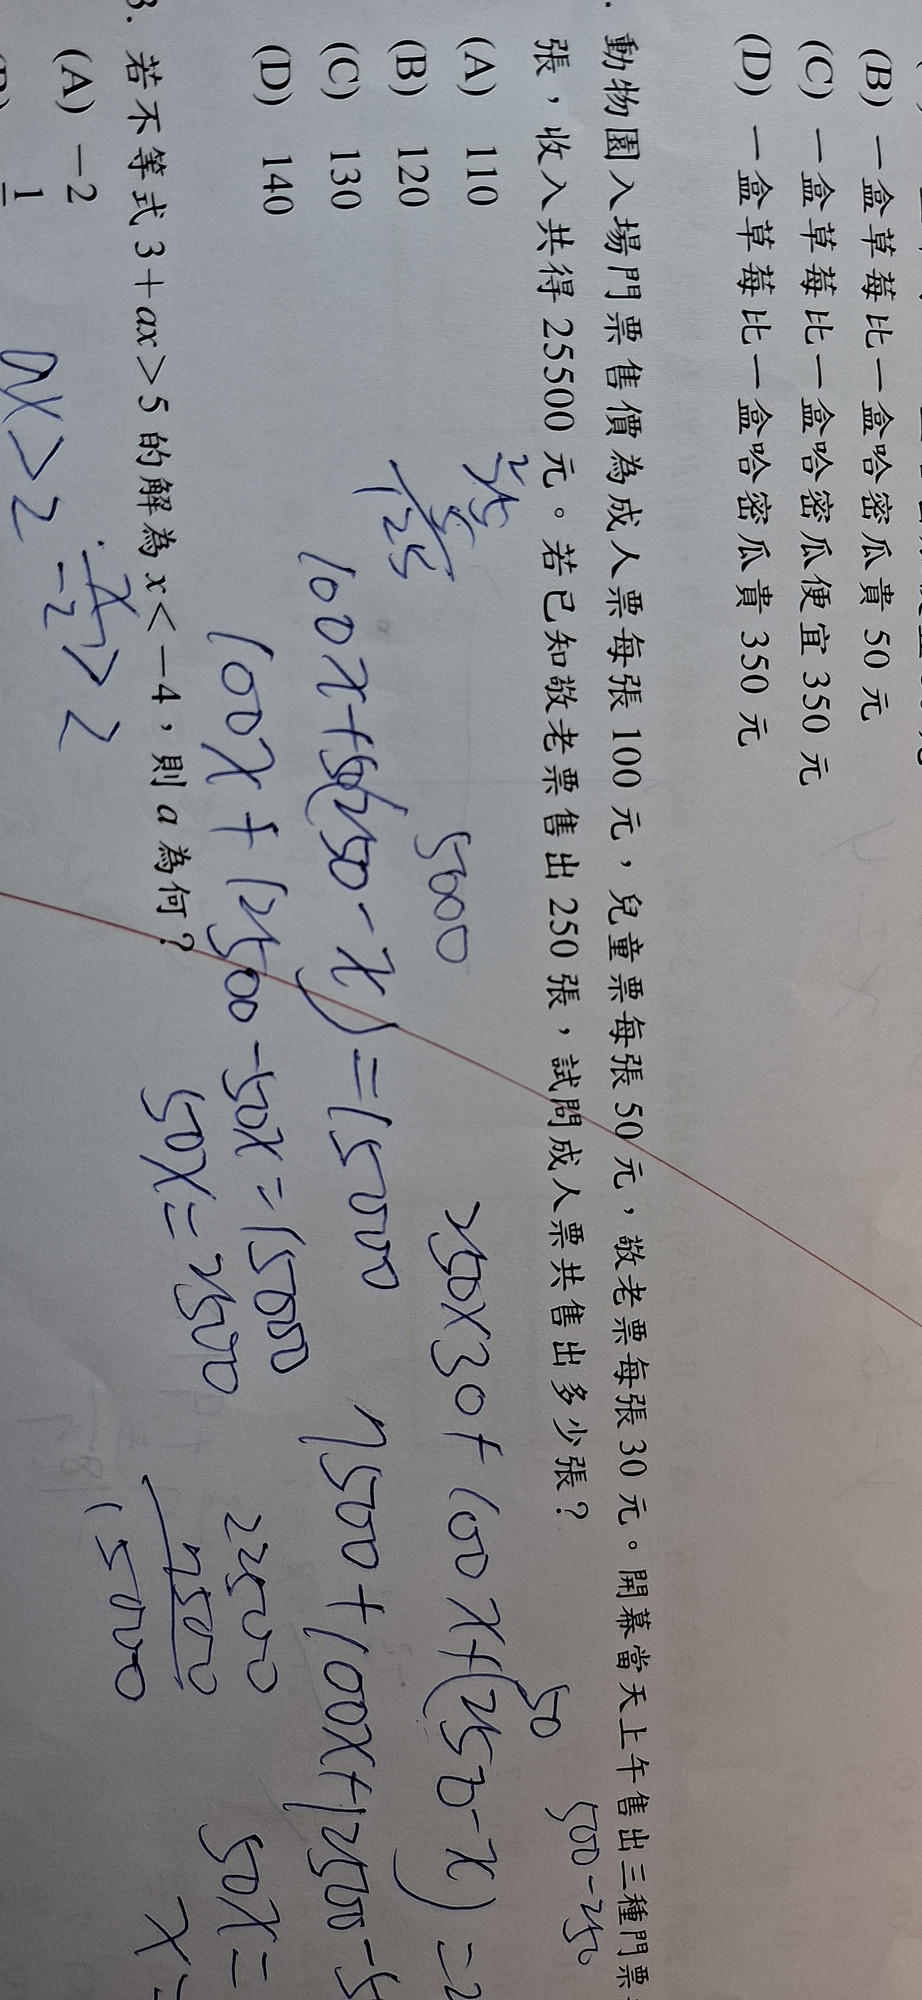 (B) 一盒草莓比一盒哈密瓜貴 50 元
(C) 一盒草莓比一盒哈密瓜便宜 350 元
(D) 一盒草莓比一盒哈密瓜貴 350 元
動物園入場門票售價為成人票每張 100 元，兒童票每張 50 元，敬老票每張 30 元。開幕當天上午售出三種門票
張，收入共得 25500 元。若已知敬老票售出 250 張，試問成人票共售出多少張？
(A) 110
(B) 120
(C) 130
(D) 140
50
500-250
5000
250×30+100x+(250-x)=2
100x+50(250-x)=15000
7500+100x+12500-5
100x+12500-50x=15000
50x=2500
22500
7500
15000
50x=
3. 若不等式 3+ax>5 的解為 x<-4，則 a 為何？
(A) -2
ax>2